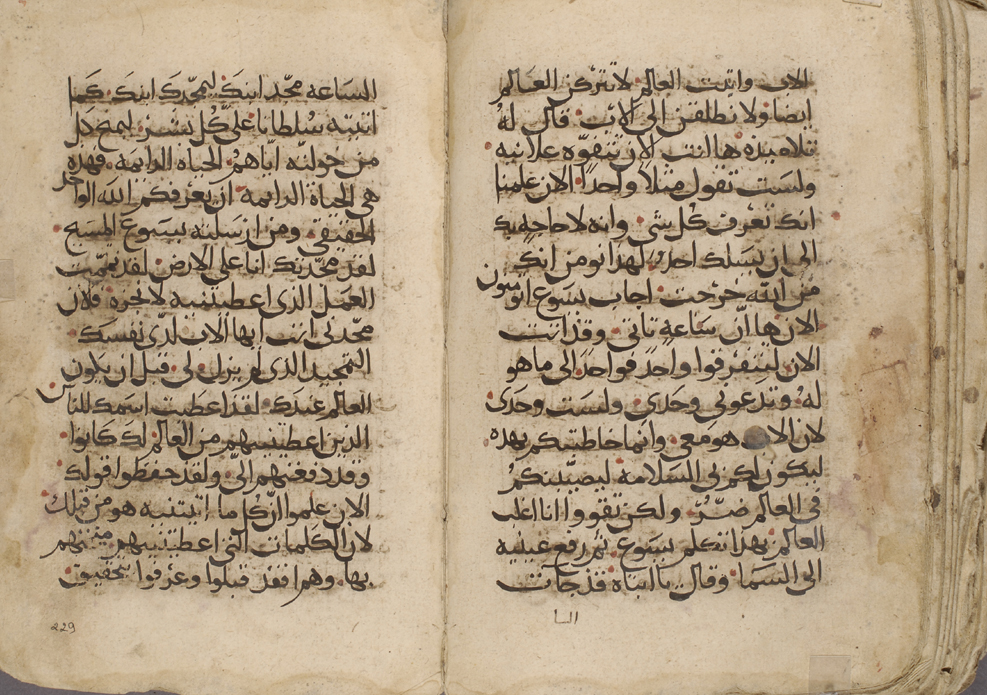 الاب واتيت العالم لاتركن العالم
ايضا ولانطلقن الى الاب قال له
تلاميذه ها انت الان تتفوه علانيه
ولست تقول مثلا واحدا الان علمنا
انك تعرف كل شي وانه لا حاجه بك
الى ان يسلك احد لهذا نومن انك
من الله خرجت اجاب يسوع اتومنون
الان ها ان ساعة تاتي وقد اتت
الان لتتفرقوا واحد فواحد الى ما هو
له وتدعوني وحدي ولست وحدي
لان الاب هو معي وانما خاطبتكم بهذه
ليكون لكم بي السلامه ليصيبنكم
في العالم ضر ولكن تقووا انا اغلب
العالم بهذا تكلم يسوع ثم رفع عينيه
الى السما وقال يا ابتاه قد جات
السا
الساعه مجد ابنك ليمجدك ابنك كما
اتيته سلطانا على كل بشر ليمنح كل
من خولته اياهم الحياه الدايمه فهذه
هي الحياة الدايمة ان يعرفكم الله الواحد
الحقيقي ومن ارسلته يسوع المسيح
لقد مجدتك انا على الارض لقد تممت
العمل الذي اعطيتنيه لانجزه فالان
مجدني انت ايها الاب لدى نفسك
التمجيد الذي لم يزل لي قبل ان يكون
العالم عندك لقد اعطيت اسمك للناس
الذين اعطيتنيهم من العالم لك كانوا
وقد دفعتهم الي ولقد حفظوا قولك
الان علموا ان كل ما اتيتنيه هو من قبلك
لان الكلمات التي اعطيتنيهم منيتهم
بها وهم افقد قبلوا وعرفوا بتحقيق
229